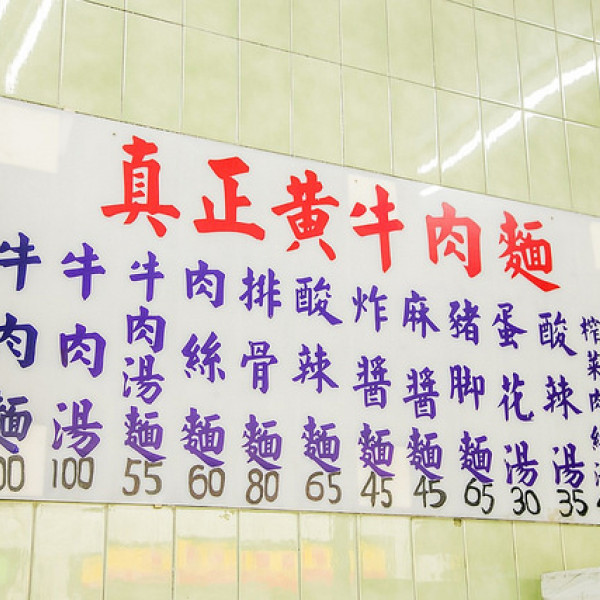 真正黃牛肉麵
牛肉麵 00
牛肉湯 100
牛肉湯麵 55
肉絲麵 60
排骨麵 80
酸辣麵 65
炸醬麵 45
麻醬麵 45
豬腳麵 65
蛋花湯 30
酸辣湯 35
榨菜肉絲湯